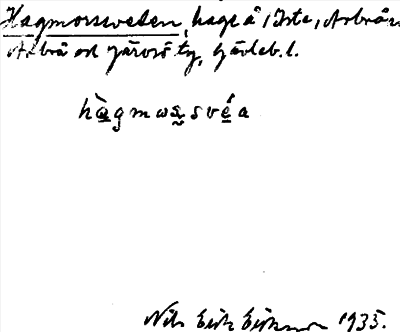 Hagmorssveden, hage å 1 Iste, Arbrå s
Arbrå och Järvsö tg, Gävleb. l.
hàgmωa̰svéa
Nils Erik Eriksson 1935.